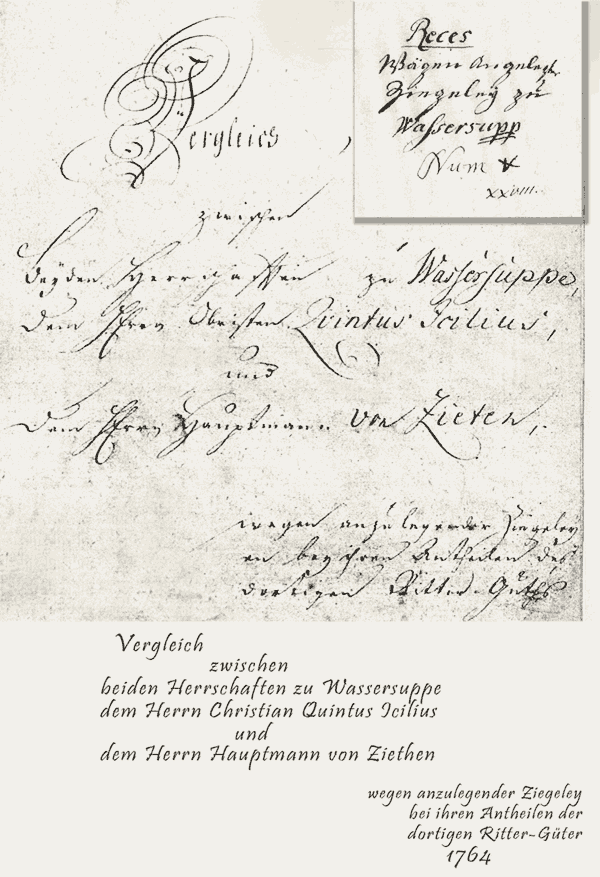 Vergleich
zwischen
beyden Herrschafften zu Wassersuppe,
dem Herrn Obristen Quintus Icilius,
und
dem Herrn Hauptmann von Zieten,
wegen anzulegender Ziegeley
bey ihren Antheilen des
dortigen Ritter-Guths
Reces
Wägen Angelegte
Ziegeley zu
Wassersupp
Num V
xxvIII.
Vergleich
zwischen
beiden Herrschaften zu Wassersuppe
dem Herrn Christian Quintus Icilius
und
dem Herrn Hauptmann von Ziethen
wegen anzulegender Ziegeley
bei ihren Antheilen der
dortigen Ritter-Güter
1764